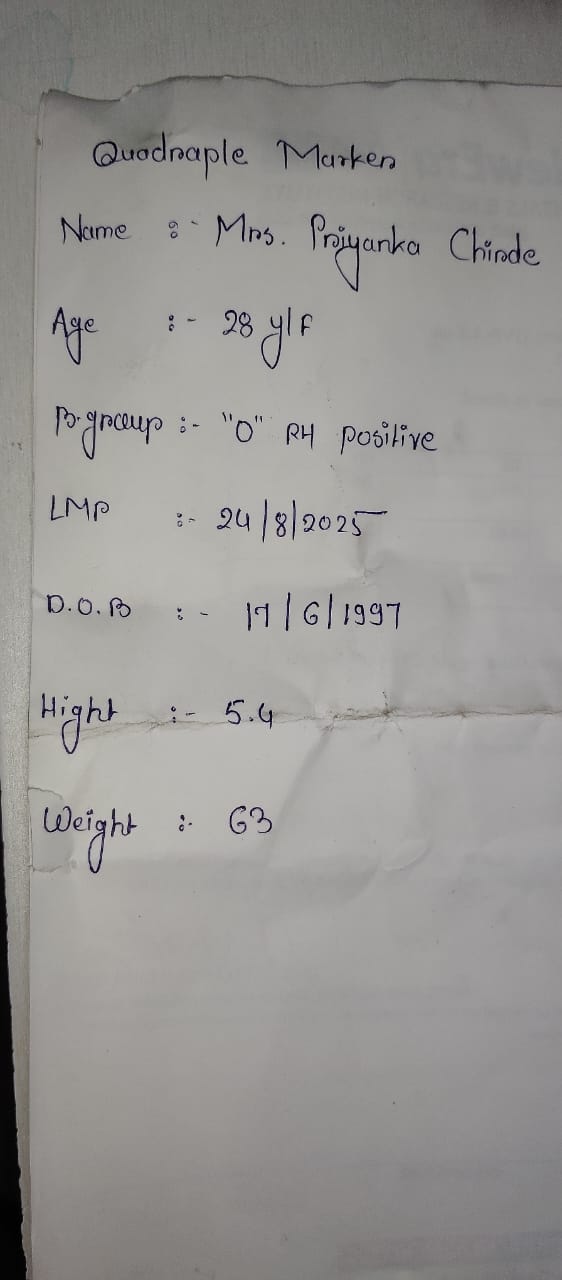 Quadraple Marker
Name :- Mrs. Priyanka Chinde
Age :- 28 y/F
B.group :- "O" RH positive
LMP :- 24/8/2025
D.O.B :- 17/6/1997
Hight :- 5.4
Weight :- 63